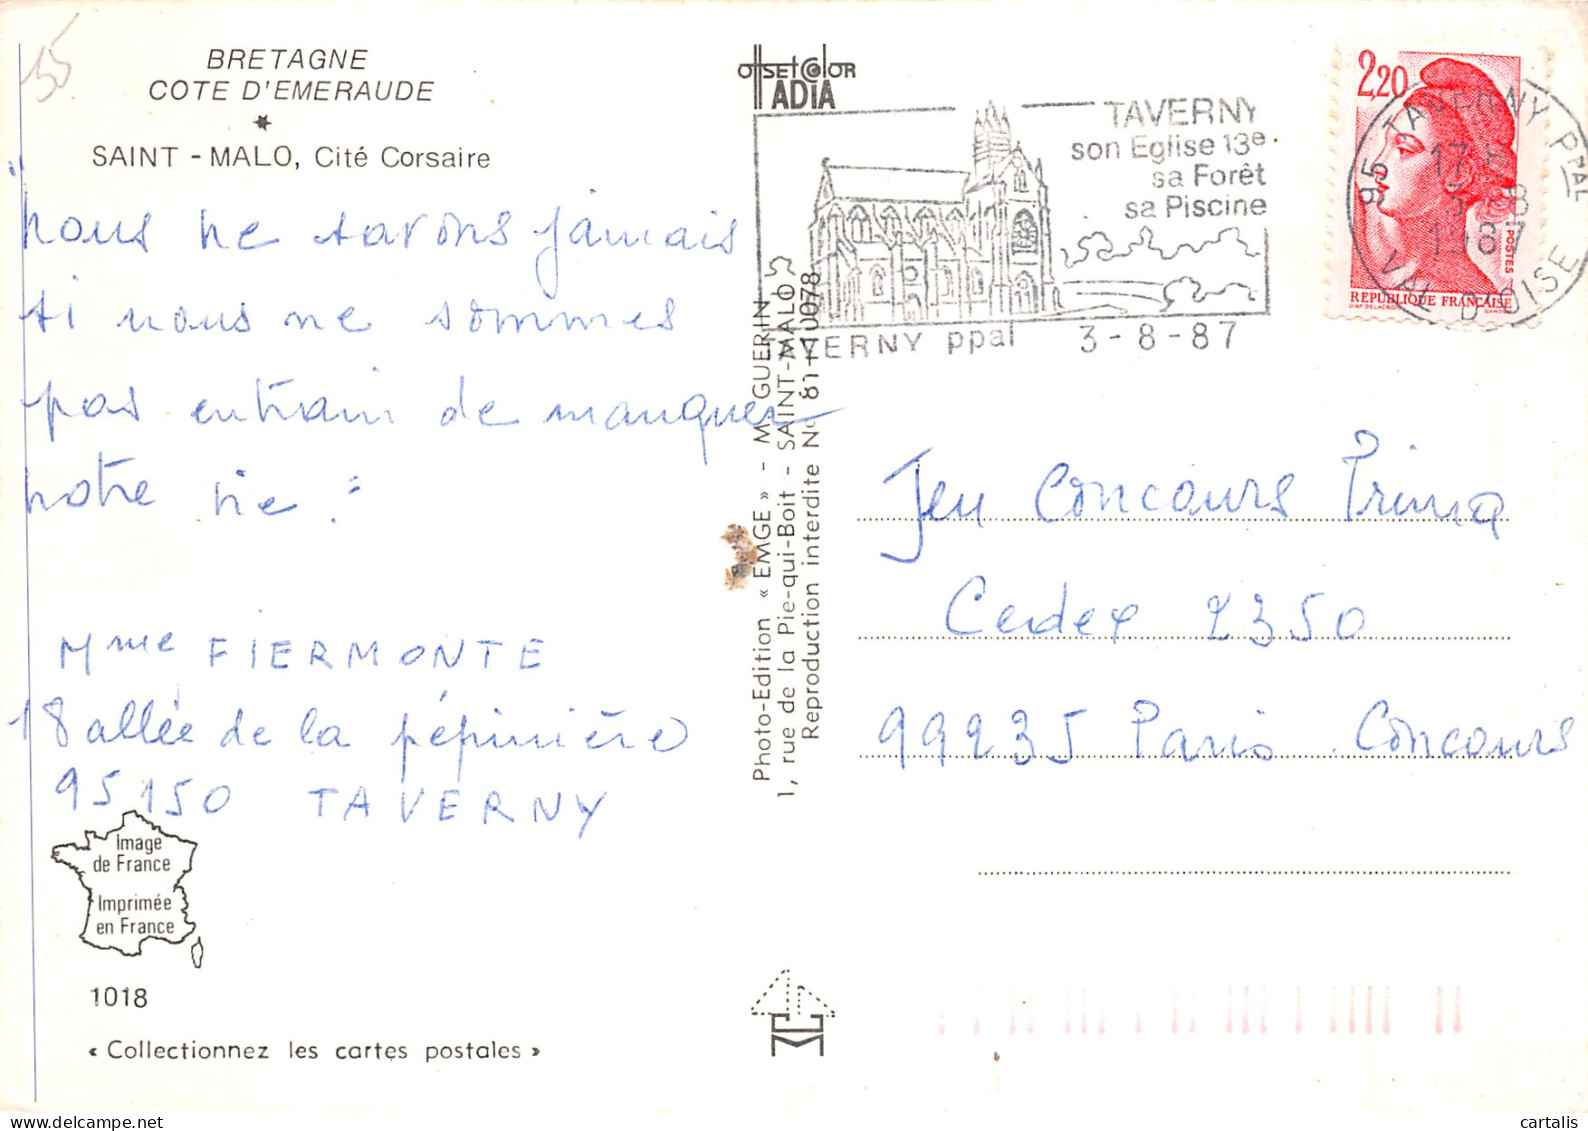 55
BRETAGNE
COTE D'EMERAUDE
SAINT - MALO, Cité Corsaire
"nous ne savons jamais
si nous ne sommes
pas entrain de manquer
notre vie"
Mme FIERMONTE
18 allée de la pépinière
95150 TAVERNY
Image
de France
Imprimée
en France
1018
« Collectionnez les cartes postales »
OffSET COlOR
ADIA
Photo-Edition « EMGE » - M. GUERIN
1, rue de la Pie-qui-Boit - SAINT-MALO
Reproduction interdite N° 81-10078
TAVERNY
son Eglise 13e
sa Forêt
sa Piscine
TAVERNY ppal 3-8-87
2,20
POSTES
REPUBLIQUE FRANÇAISE
95 TAVERNY PPAL
17 H
3-8
1987
VAL D'OISE
Jeu Concours Prima
Cedex 2350
99235 Paris Concours
cartalis